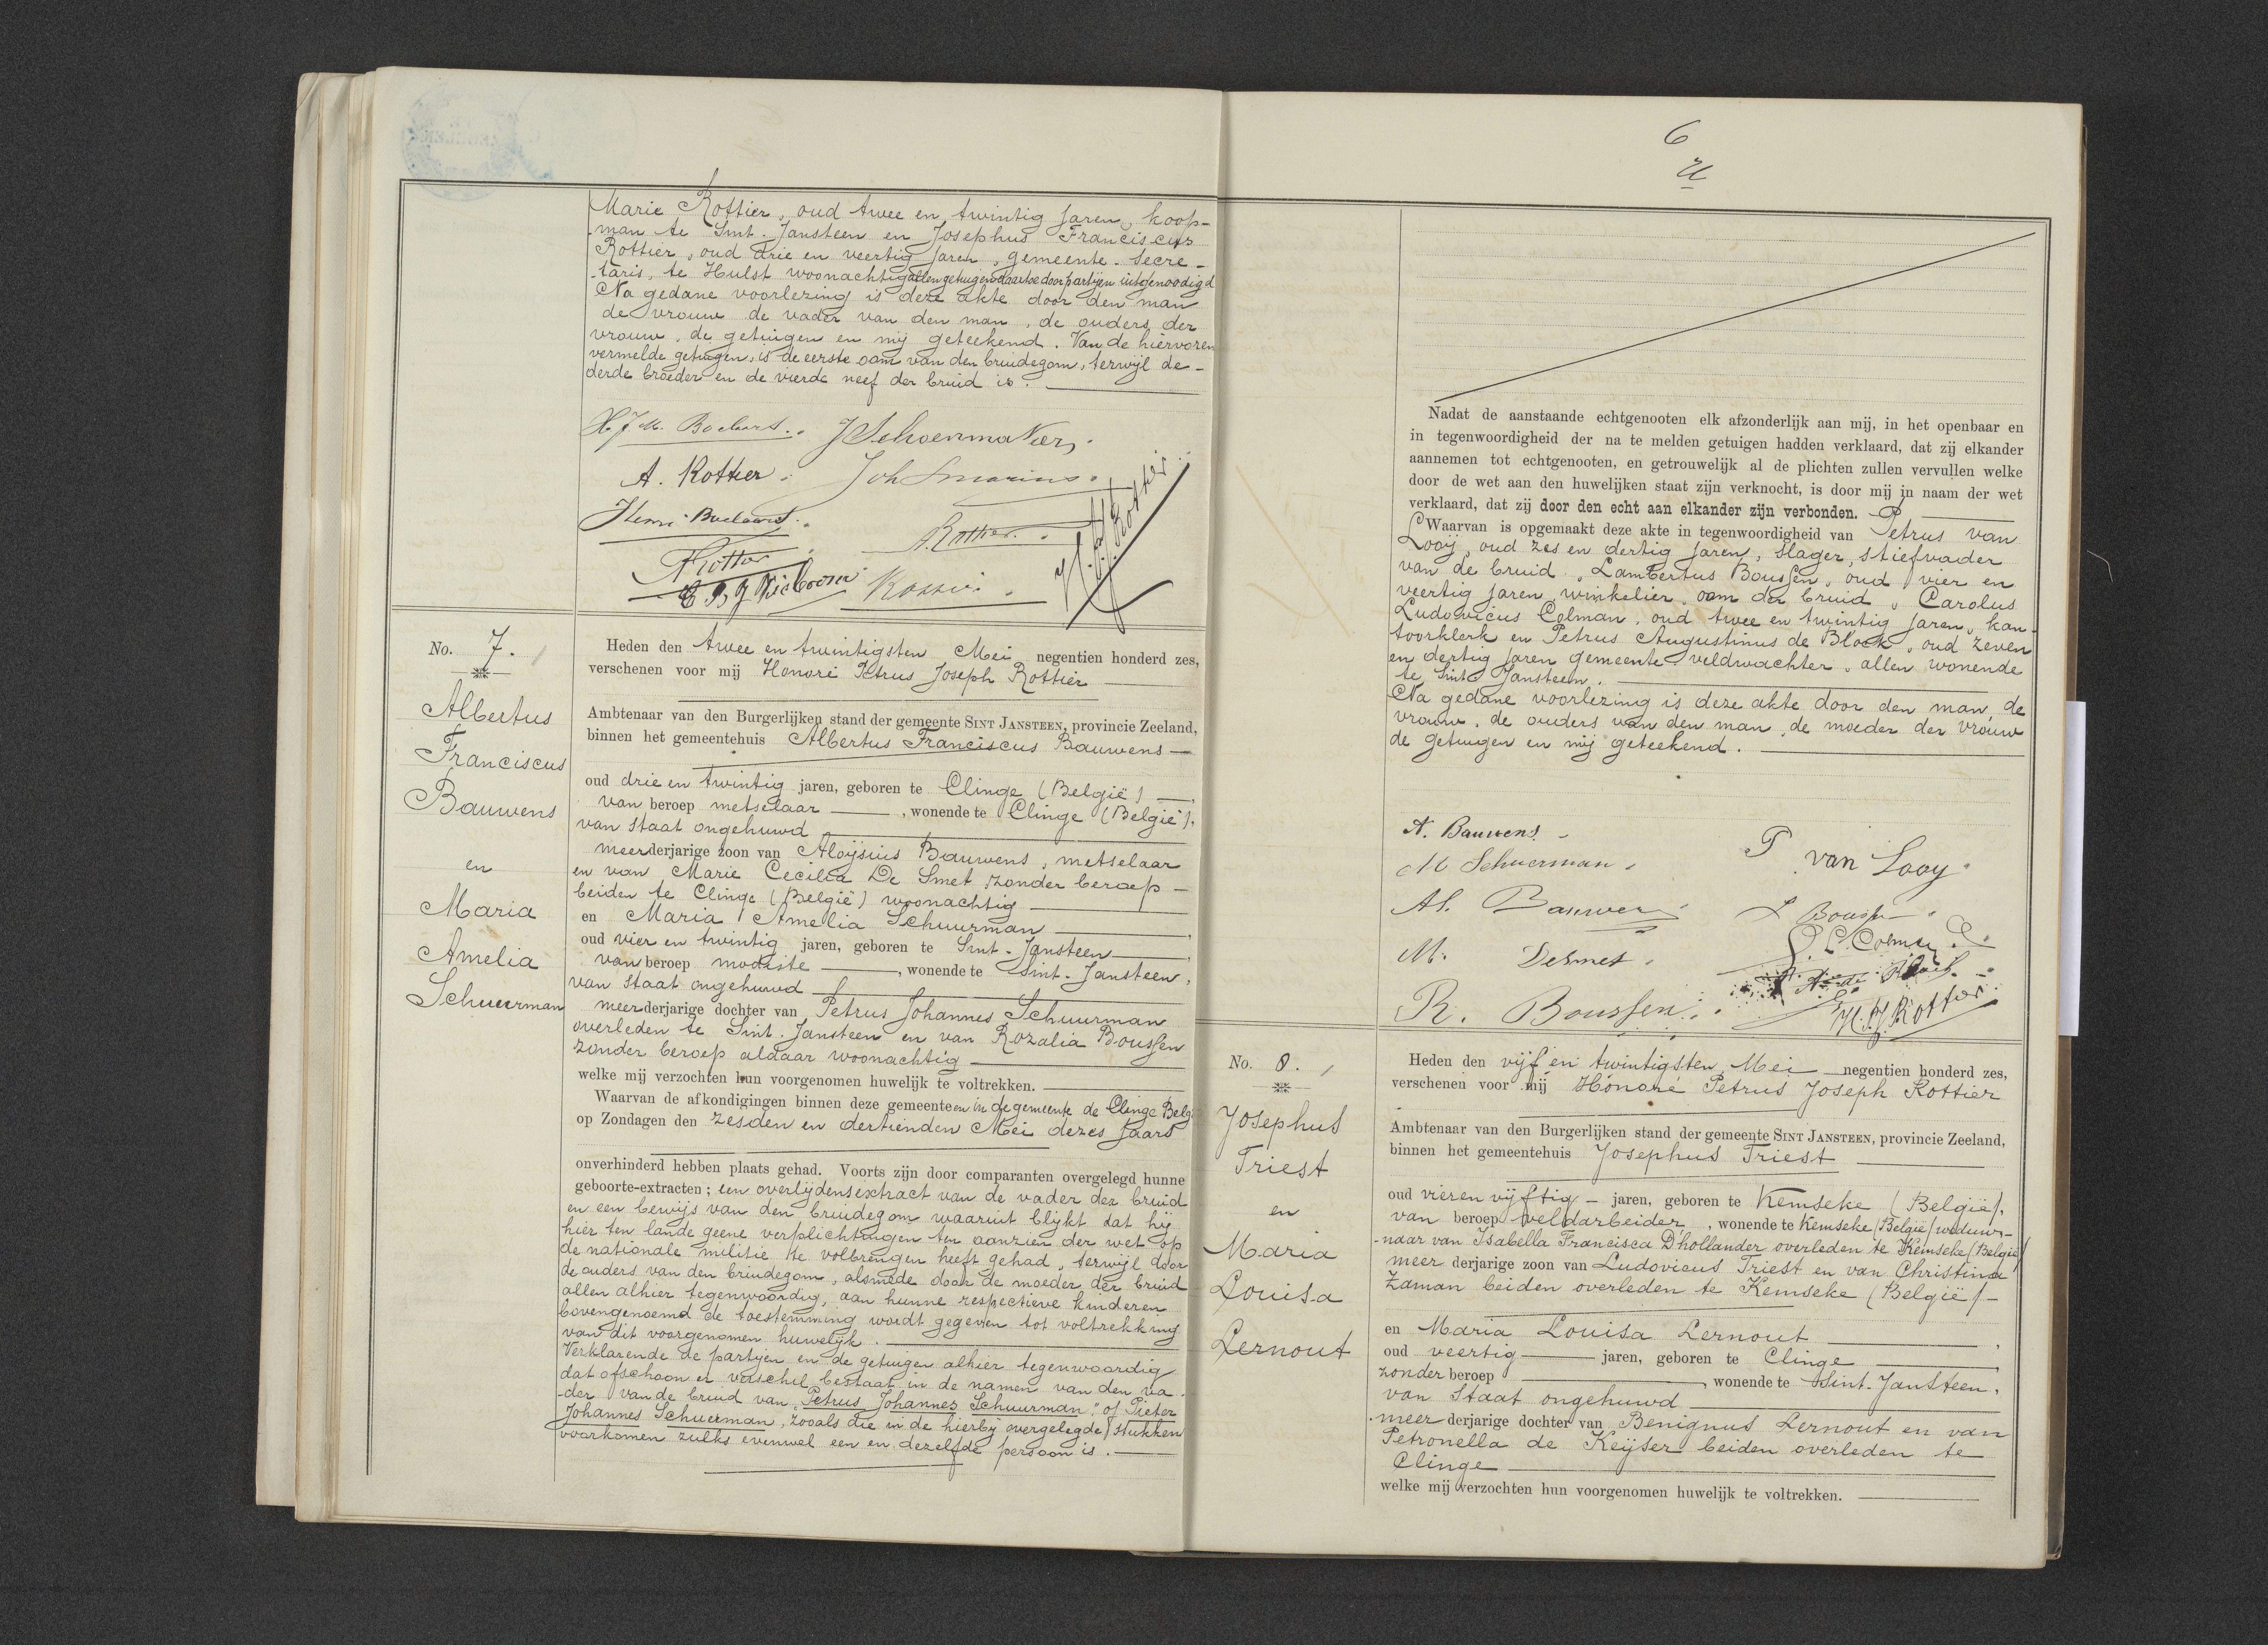 Marie Rottier, oud twee en twintig jaren, koop-
man te Sint-Jansteen en Josephus Franciscus
Rottier, oud drie en veertig jaren, gemeente-secre-
taris, te Hulst woonachtig allen getuigen daartoe door partijen uitgenoodigd
Na gedane voorlezing is deze akte door den man
de vrouw de vader van den man, de ouders der
vrouw, de getuigen en mij geteekend. Van de hiervoren
vermelde getuigen, is de eerste oom van den bruidegom, terwijl de
derde broeder en de vierde neef der bruid is.
H J M. Boelaert.
J Schoenmakers.
A. Rottier.
Henri Boelaert.
A. Rottier.
No. 7.
Albertus
Franciscus
Bauwens
en
Maria
Amelia
Schuurman
Heden den twee en twintigsten Mei negentien honderd zes,
verschenen voor mij Honoré Petrus Joseph Rottier
Ambtenaar van den Burgerlijken stand der gemeente SINT JANSTEEN, provincie Zeeland,
binnen het gemeentehuis Albertus Franciscus Bauwens
oud drie en twintig jaren, geboren te Clinge (België),
van beroep metselaar, wonende te Clinge (België),
van staat ongehuwd
meerderjarige zoon van Aloÿsius Bauwens, metselaar
en van Marie Cecilia De Smet zonder beroep
beiden te Clinge (België) woonachtig
en Maria Amelia Schuurman,
oud vier en twintig jaren, geboren te Sint-Jansteen,
van beroep modiste, wonende te Sint-Jansteen,
van staat ongehuwd
meerderjarige dochter van Petrus Johannes Schuurman
overleden te Sint-Jansteen en van Rozalia Boussen
zonder beroep aldaar woonachtig
welke mij verzochten hun voorgenomen huwelijk te voltrekken.
Waarvan de afkondigingen binnen deze gemeente en in de gemeente de Clinge Belg.
op Zondagen den zesden en dertienden Mei dezes jaars
onverhinderd hebben plaats gehad. Voorts zijn door comparanten overgelegd hunne
geboorte-extracten; een overlijdensextract van de vader der bruid
en een bewijs van den bruidegom waaruit blijkt dat hij
hier ten lande geene verplichtingen ten aanzien der wet op
de nationale militie te volbrengen heeft gehad, terwijl door
de ouders van den bruidegom, alsmede door de moeder der bruid
allen alhier tegenwoordig, aan hunne respectieve kinderen
bovengenoemd de toestemming wordt gegeven tot voltrekking
van dit voorgenomen huwelijk.
Verklarende de partijen en de getuigen alhier tegenwoordig
dat ofschoon er verschil bestaat in de namen van den va-
der van de bruid van "Petrus Johannes Schuurman" of Pieter
Johannes Schuerman, zooals die in de hierbij overgelegde stukken
voorkomen zulks evenwel een en dezelfde persoon is.
6
Nadat de aanstaande echtgenooten elk afzonderlijk aan mij, in het openbaar en
in tegenwoordigheid der na te melden getuigen hadden verklaard, dat zij elkander
aannemen tot echtgenooten, en getrouwelijk al de plichten zullen vervullen welke
door de wet aan den huwelijken staat zijn verknocht, is door mij in naam der wet
verklaard, dat zij door den echt aan elkander zijn verbonden.
Waarvan is opgemaakt deze akte in tegenwoordigheid van Petrus van
Looij, oud zes en dertig jaren, slager, stiefvader
van de bruid, Lambertus Boussen, oud vier en
veertig jaren, winkelier, oom der bruid, Carolus
Ludovicus Colman, oud twee en twintig jaren, kan-
toorklerk en Petrus Augustinus de Block, oud zeven
en dertig jaren gemeente-veldwachter, allen wonende
te Sint Jansteen.
Na gedane voorlezing is deze akte door den man, de
vrouw, de ouders van den man, de moeder der vrouw
de getuigen en mij geteekend.
A. Bauwens
P van Looy
M Schuerman
Al. Bauwens
L Boussen
C. Colman
M. Desmet
R. Boussen
H.P.J Rottier
No. 8.
Josephus
Triest
en
Maria
Louisa
Lernout
Heden den vijf en twintigsten Mei negentien honderd zes,
verschenen voor mij Honoré Petrus Joseph Rottier
Ambtenaar van den Burgerlijken stand der gemeente SINT JANSTEEN, provincie Zeeland,
binnen het gemeentehuis Josephus Triest
oud vier en vijftig jaren, geboren te Kemseke (België),
van beroep veldarbeider, wonende te Kemseke (België) weduw-
naar van Isabella Francisca D'hollander overleden te Kemseke (België)
meer derjarige zoon van Ludovicus Triest en van Christina
Zaman beiden overleden te Kemseke (België)
en Maria Louisa Lernout,
oud veertig jaren, geboren te Clinge,
zonder beroep, wonende te Sint-Jansteen,
van staat ongehuwd
meer derjarige dochter van Benignus Lernout en van
Petronella de Keijser beiden overleden te
Clinge
welke mij verzochten hun voorgenomen huwelijk te voltrekken.